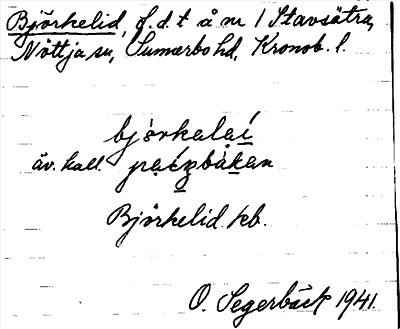 Björkelid, f.d. t å nr 1 Stavsätra,
Nöttja sn, Sunnerbo hd, Kronob. l.
bjö̀rkalaí
äv. kall.
Björkelid kb.
O. Segerbäck 1941.